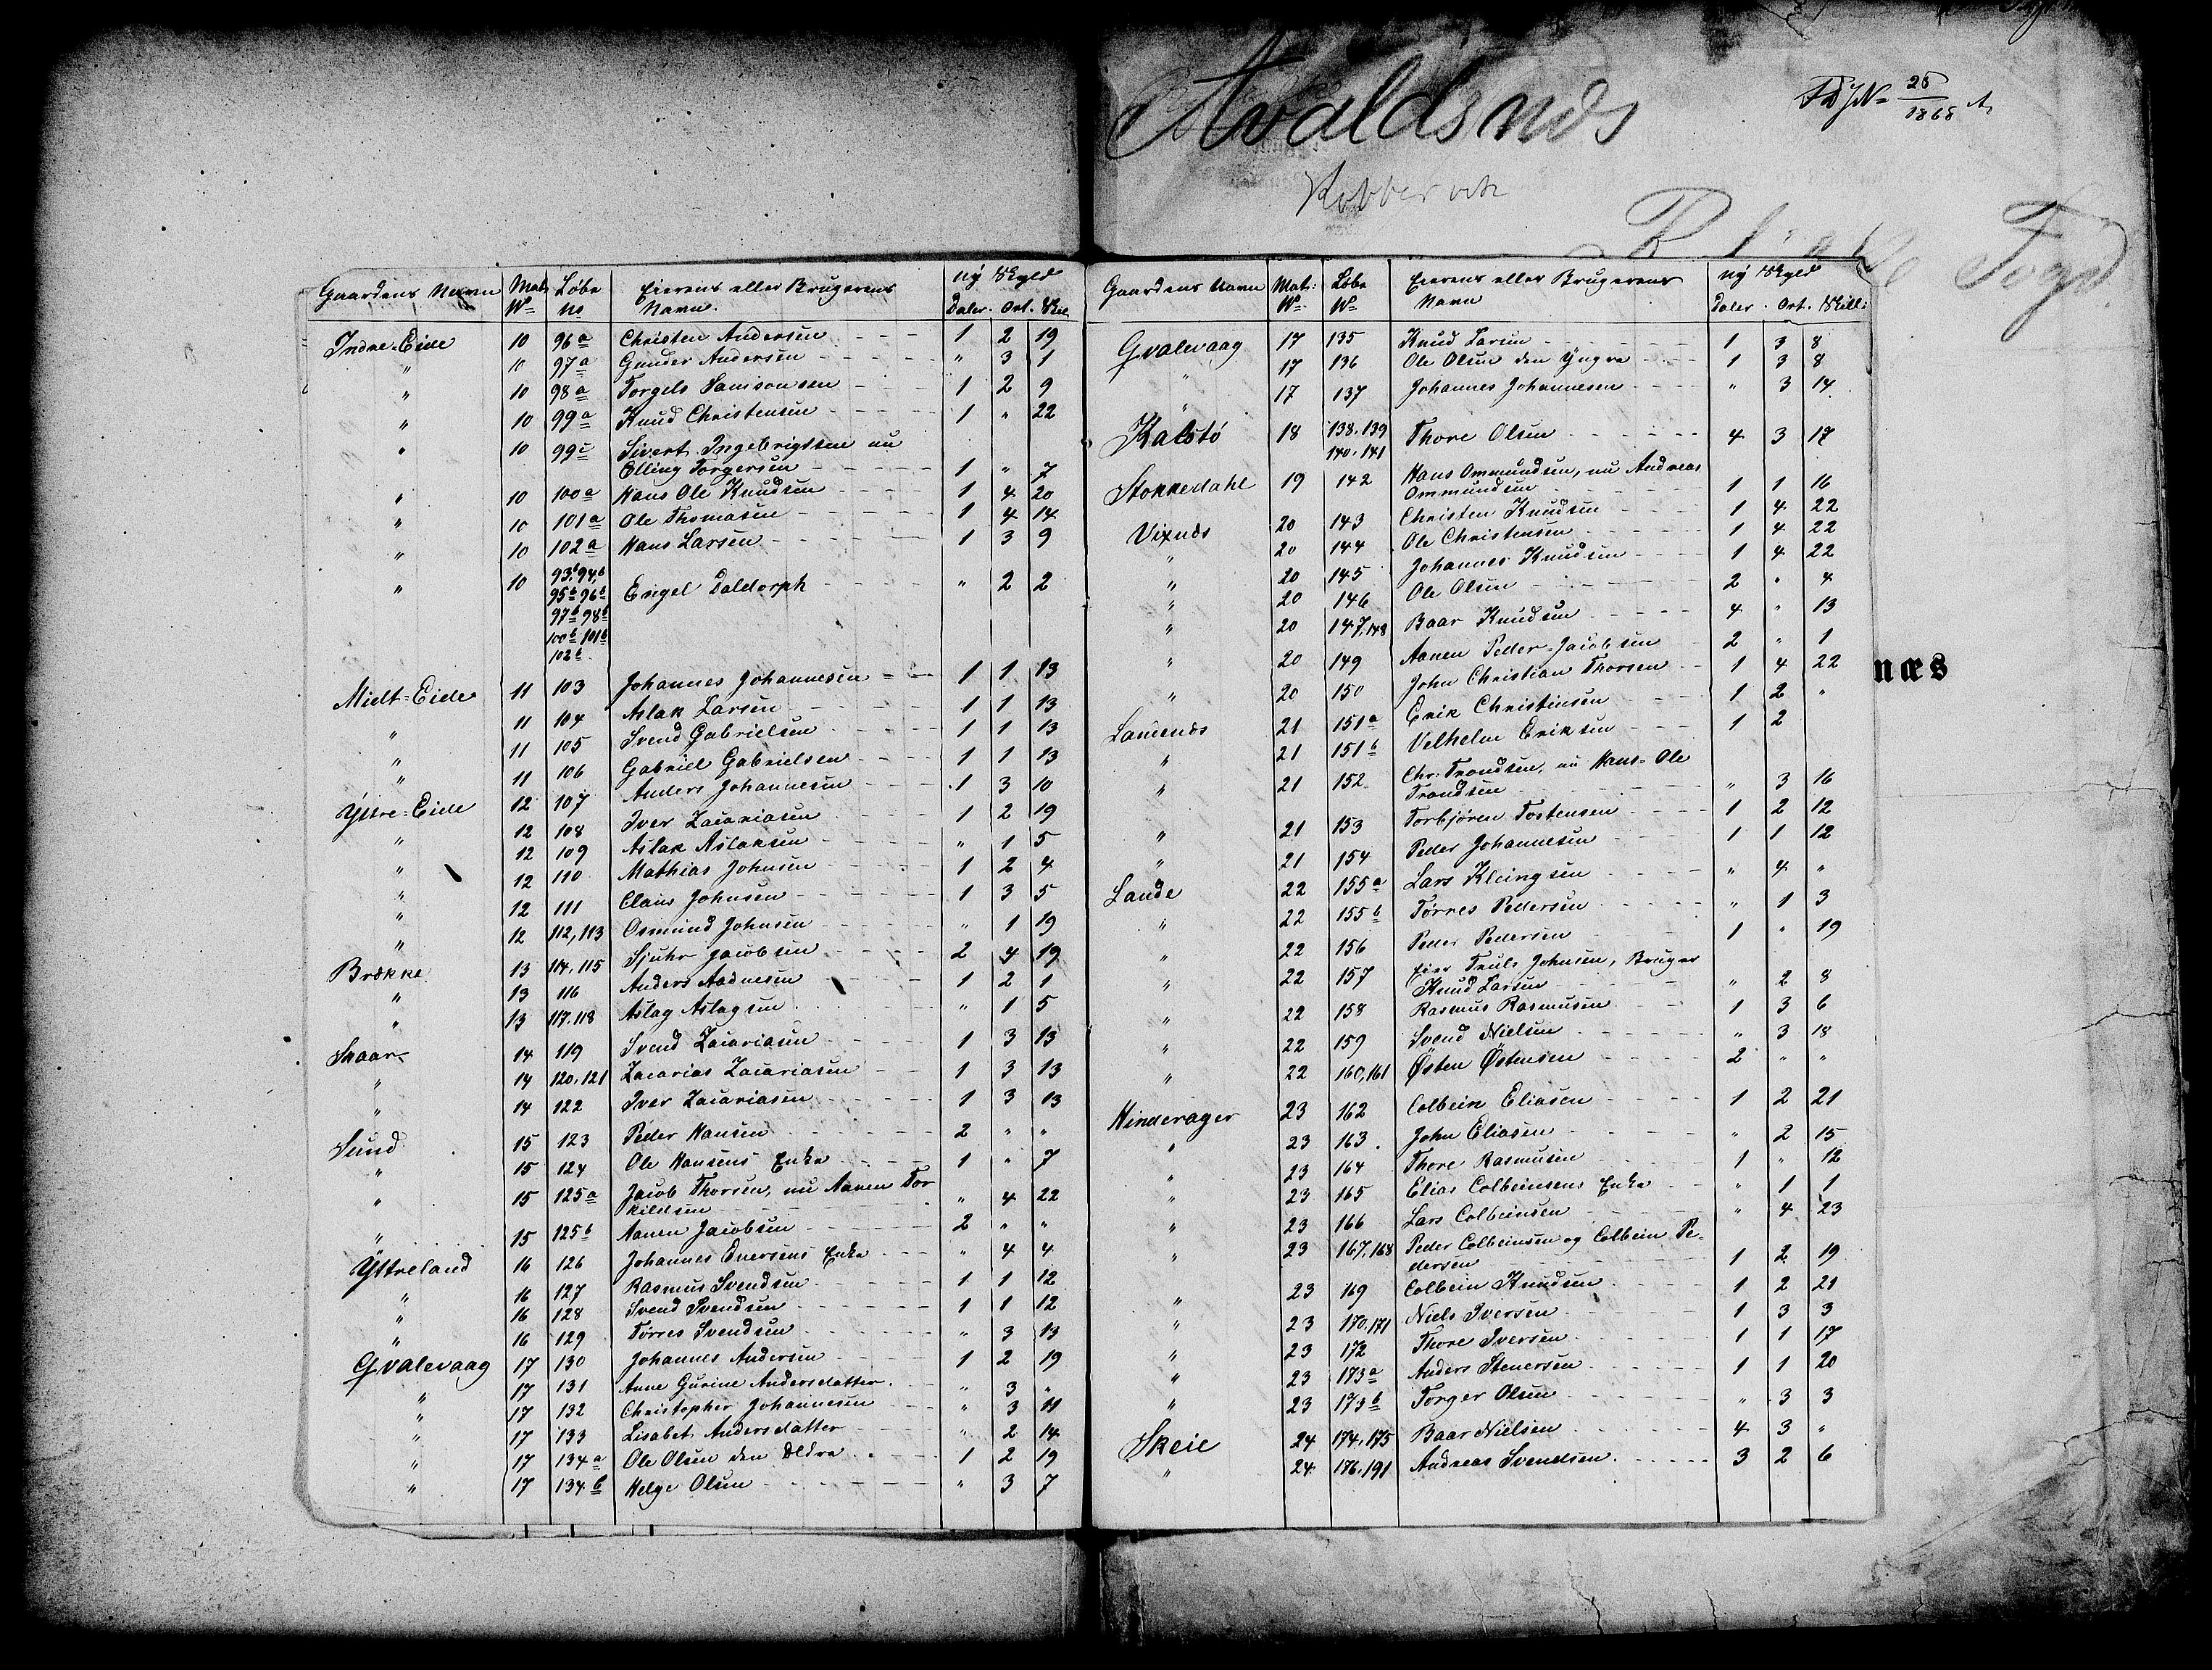 Avaldsnæs
1868
Fogd.
næs
Gaardens Navn Mat: Nº Løbe No Eierens eller Brugerens Navn. Ny Skyld Daler. Ort. Skil.
Indre-Eide 10 96a Christen Andersen 1 2 19
" 10 97a Gunder Andersen " 3 1
" 10 98a Torgels Samsonsen 1 2 9
" 10 99a Knud Christensen 1 " 22
" 10 99c Sivert Ingebrigtsen nu
Elling Torgersen 1 " 7
" 10 100a Hans Ole Knudsen 1 4 20
" 10 101a Ole Thomasen 1 4 14
" 10 102a Hans Larsen 1 3 9
" 10 93b, 94b Engel Daldorph " 2 2
95b 96b
97b 98b
100b 101b
102b
Midt-Eide 11 103 Johannes Johannesen 1 1 13
" 11 104 Aslak Larsen 1 1 13
" 11 105 Svend Gabrielsen 1 1 13
" 11 106 Gabriel Gabrielsen 1 1 13
Yttre-Eide 12 107 Anders Johannesen 1 3 10
" 12 108 Iver Zacariasen 1 2 19
" 12 109 Aslak Aslaksen " 1 5
" 12 110 Mathias Johnsen 1 2 4
" 12 111 Claus Johnsen 1 3 5
" 12 112, 113 Osmund Johnsen " 1 19
Brække 13 114, 115 Sjuhr Jacobsen 2 4 19
" 13 116 Anders Aadnesen 1 2 1
" 13 117, 118 Aslag Aslagsen " 1 5
Skaar 14 119 Svend Zacariasen 1 3 13
" 14 120, 121 Zacarias Zacariasen 1 3 13
" 14 122 Iver Zacariasen 1 3 13
Sund 15 123 Peder Hansen 2 " "
" 15 124 Ole Hansens Enke 1 " 7
" 15 125a Jacob Thorsen, nu Aanen Tor
kildsen " 4 22
" 15 125b Aanen Jacobsen 2 " "
Yttreland 16 126 Johannes Enersens Enke " 4 4
" 16 127 Rasmus Svendsen 1 1 12
" 16 128 Svend Svendsen 1 1 12
" 16 129 Tørres Svendsen " 3 13
Gvalevaag 17 130 Johannes Andersen 1 2 19
" 17 131 Anne Gurine Andersdatter " 3 "
" 17 132 Christopher Johannesen " 3 11
" 17 133 Lisabet Andersdatter " 2 14
" 17 134a Ole Olsen den Ældre 1 2 19
" 17 134b Helge Olsen " 3 7
Gaardens Navn Mat: Nº Løbe Nº Eierens eller Brugerens Navn Ny Skyld Daler. Ort. Skill:
Gvalevaag 17 135 Knud Larsen 1 3 8
" 17 136 Ole Olsen den Yngre 1 3 8
" 17 137 Johannes Johannesen " 3 14
Kalstø 18 138, 139 Thore Olsen 4 3 17
140, 141
Stokkedahl 19 142 Hans Ommundsen, nu Andreas
Ommundsen 1 1 16
Vixnæs 20 143 Christen Knudsen 1 4 22
" 20 144 Ole Christensen 1 4 22
" 20 145 Johannes Knudsen 1 4 22
" 20 146 Ole Olsen 2 " 4
" 20 147, 148 Baar Knudsen 4 " 13
" 20 149 Aanen Peder Jacobsen 2 " 1
" 20 150 John Christian Thorsen 1 4 22
Lauenæs 21 151a Erik Christinsen 1 2 "
" 21 151b Velhelm Eriksen 1 2
" 21 152 Chr: Trondsen, nu Hans-Ole
Trondsen " 3 16
" 21 153 Torbjøren Tostensen 1 2 12
" 21 154 Peder Johannesen 1 1 12
Lande 22 155a Lars Kleingsen " 4 "
" 22 155b Tørres Pedersen " 1 3
" 22 156 Peder Pedersen 1 " 19
" 22 157 Eier Truls Johnsen, Bruger
Knud Larsen " 2 8
" 22 158 Rasmus Rasmusen 1 3 6
" 22 159 Svend Nielsen " 3 18
" 22 160, 161 Østen Østensen 2 " "
Hinderager 23 162 Colbein Eliasen 1 2 21
" 23 163 John Eliasen " 2 15
" 23 164 Thore Rasmusen 1 " 12
" 23 165 Elias Colbeinsens Enke " 1 1
" 23 166 Lars Colbeinsen " 4 23
" 23 167, 168 Peder Colbeinsen og Colbein Pe-
dersen 1 2 19
" 23 169 Colbein Knudsen 1 2 21
" 23 170, 171 Niels Iversen 1 3 3
" 23 172 Thore Iversen 1 1 17
" 23 173a Anders Stenersen 1 1 20
" 23 173b Torger Olsen " 3 3
Skeie 24 174, 175 Baar Nielsen 4 3 "
" 24 176, 191 Andreas Svendsen 3 2 6